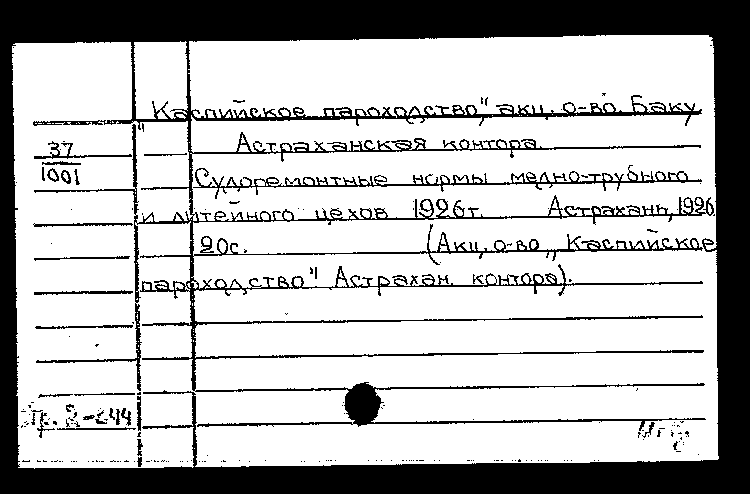 "Каспийское пароходство", акц. о-во. Баку
Астраханская контора.
37
1001
Судоремонтные нормы медно-трубного
и литейного цехов 1926г. Астрахань, 1926
20с. (Акц. о-во „Каспийское
пароходство" Астрахан. контора).
Пр. 2-244